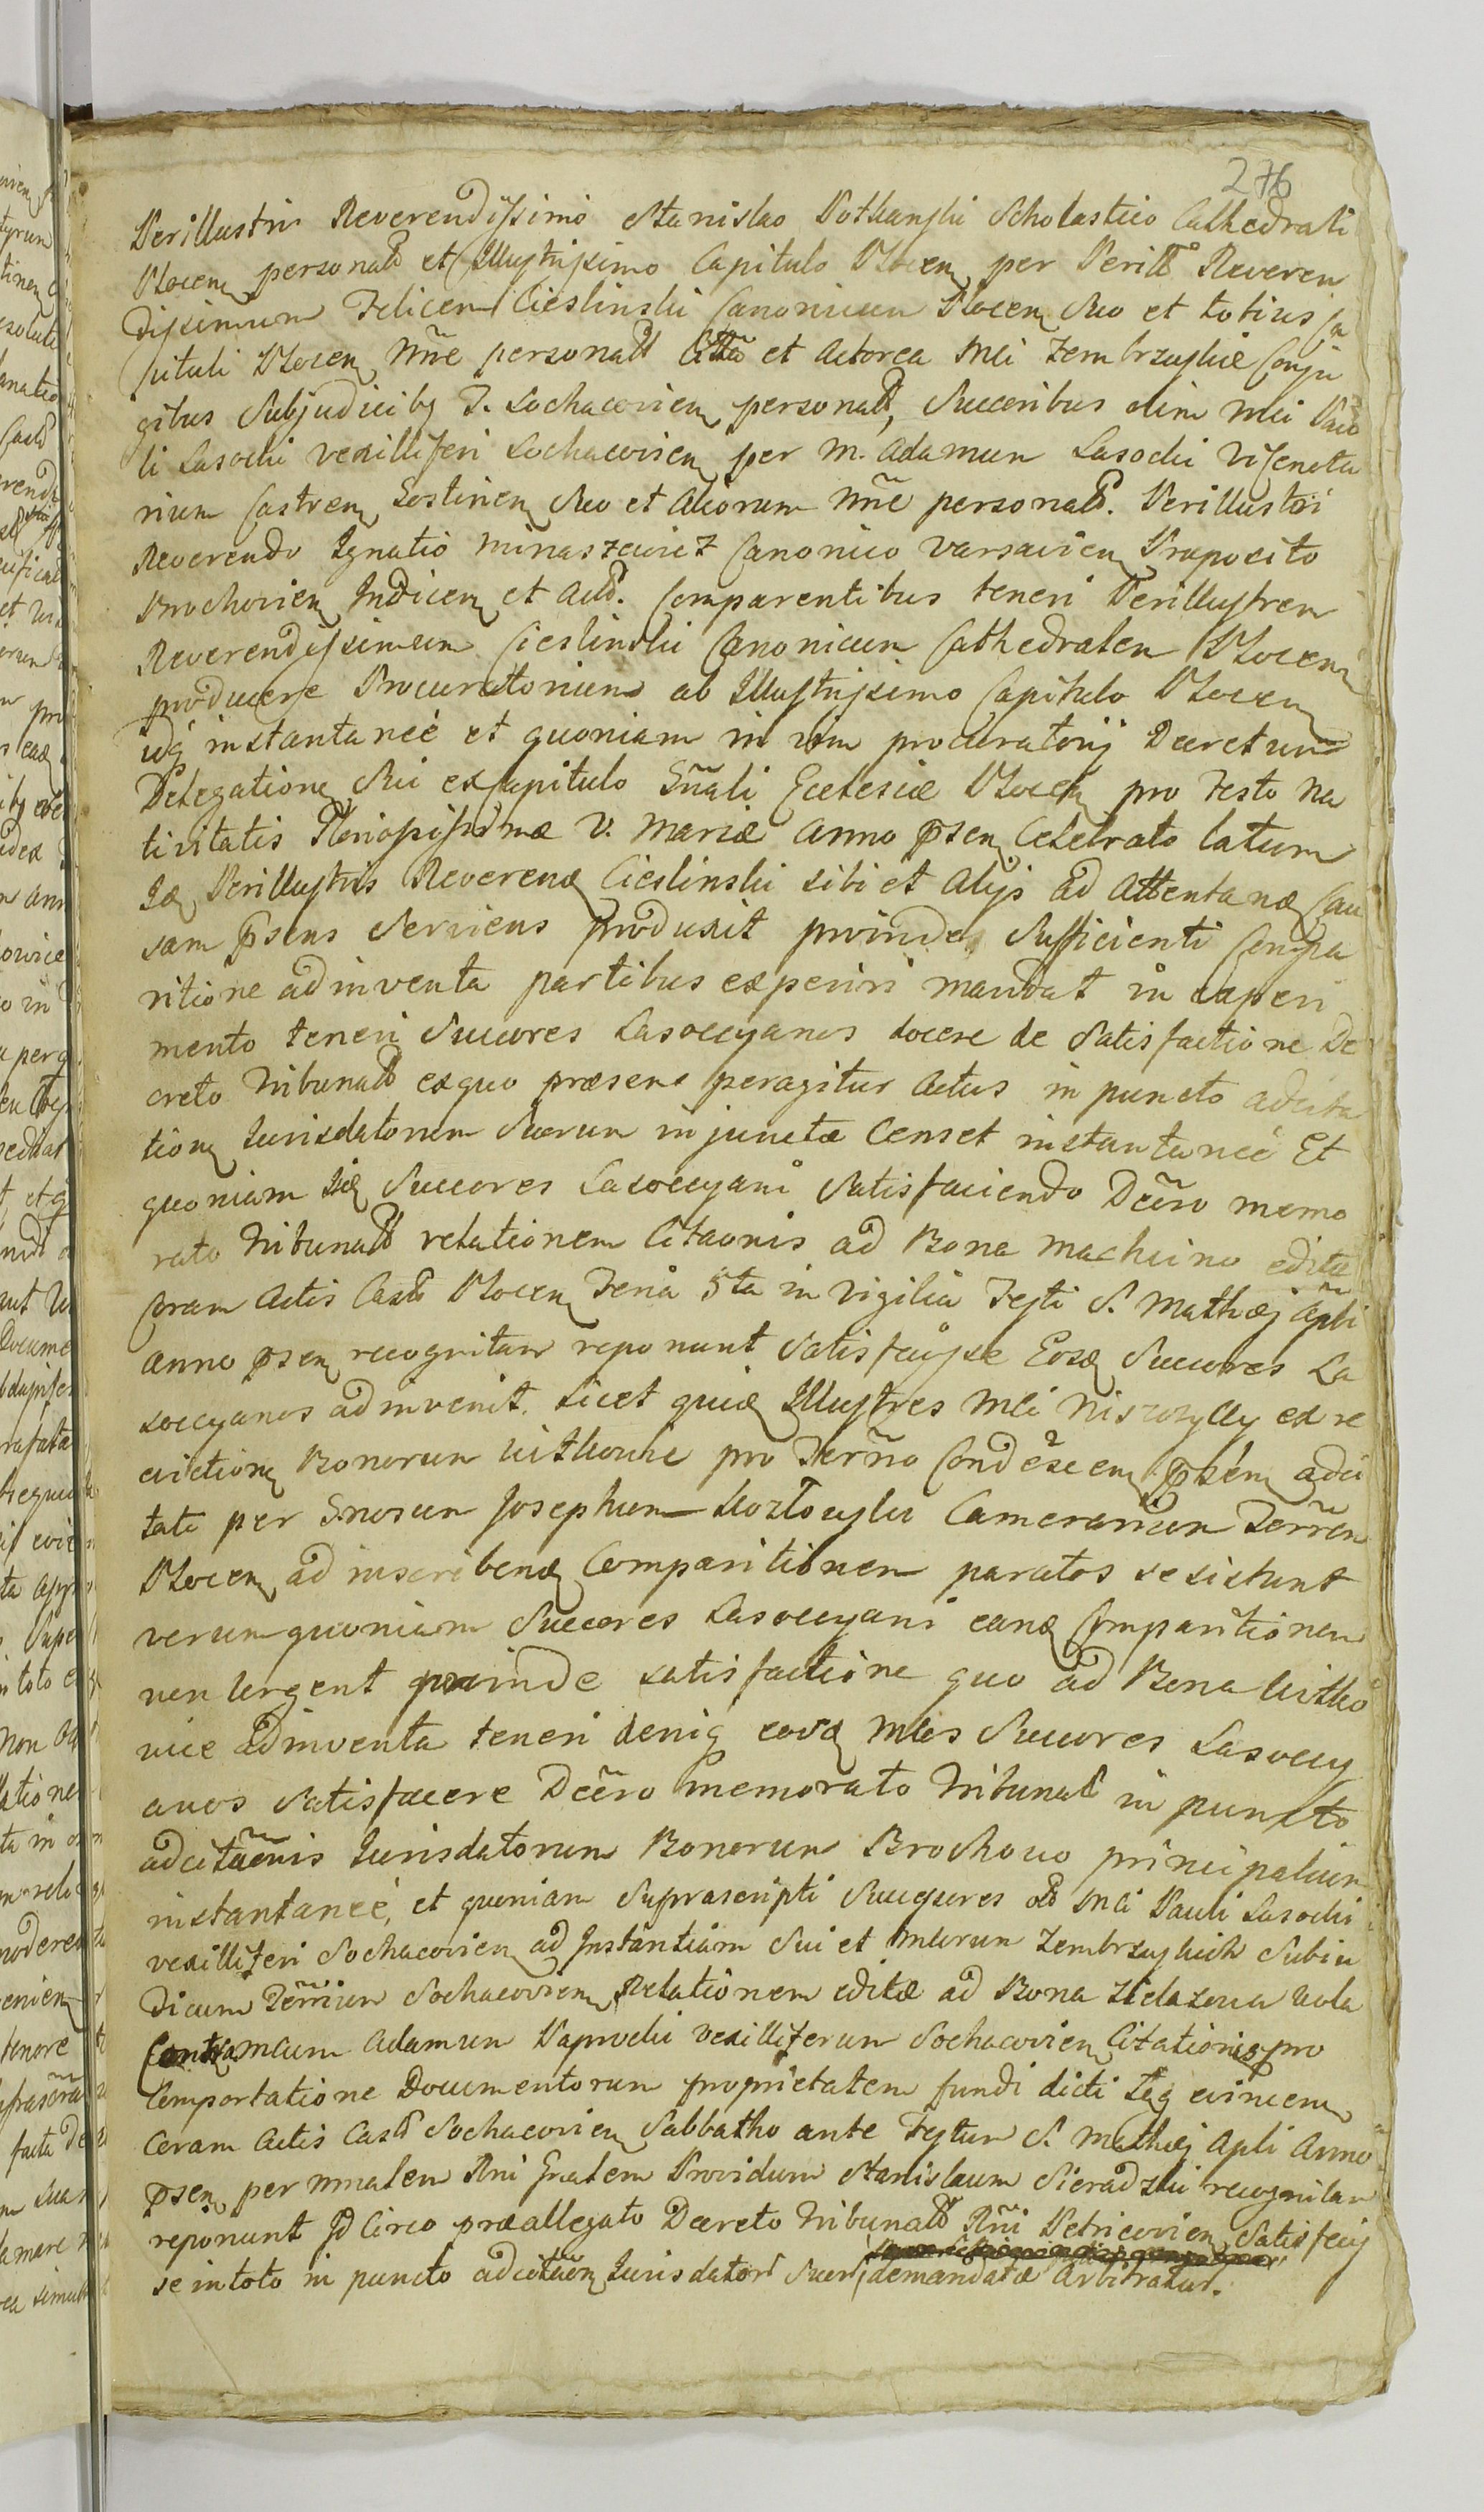 276
Perillustri Reverendissimo Stanislao Pothanski Scholastico Cathedrali
Plocen personalr et Illustrissimo Capitulo Plocen per Perille Reveren
dissimum Felicem Cieslinski Canonicum Plocen Suo et totius Ca
pituli Plocen nne personalr et Actorea Mci Zembrzuskie Conju
gibus Subjudicibq T. Sochacovien personalr, Succoribus olim Mci Pau
li Lasocki vexilliferi Sochacovien per M. Adamum Lasocki Viceneta
rium Castren Gostinen Suo et Aliorum nne personalr. Perillustri
Reverendo Ignatio Minaszewicz Canonico Varsavien Præposito
Brochovien Judicen et Actr. Comparentibus teneri Perillustrem
Reverendissimum Cieslinski Canonicum Cathedralem Plocen
producere Procuratorium ab Illustrissimo Capitulo Plocen
idq instantanee et quoniam in vim procuratorij Decretum
Delegatione Sui ex Capitulo Gnali Ecclesiæ Plocen pro Festo Na
tivitatis Gloriosissimæ V. Mariæ Anno psen Celebrato latum
Idq Perillustris Reverend Cieslinski sibi et Alijs ad Attentand Cau
sam psens Serviens produxit proinde Sufficienti Compa
ritione adinventa partibus experiri mandat in experi
mento teneri Succores Lasoccyanos docere de Satisfactione De
creto Tribunalr exquo præsens peragitur Actus in puncto adcita
tionq Jurisdatorum Suorum injunctæ Censet instantanee Et
quoniam Succores Lasoccyani Satisfaciendo Decro memo
rato Tribunalr relationem Citaonis ad Bona Machcino editæ
Coram Actis Castr Plocen Feria 5ta in Vigilia Festi S. Mathæj Apli
Anno psen recognitam reponunt Satisfecisse Eosd Succores La
soccyanos adinvenit. Licet quiq Illustres Mci Niszczyccy ex re
evictionq Bonorum Witkowice pro Termo Condescen psen adci
tati per Gnosum Josephum Kozlowski Camerarium Terren
Plocen ad inscribend Comparitionem paratos se sistunt
verum quoniam Succores Lasoccyani eand Comparitionem
non Urgent proinde satisfactione quo ad Bona Witko
wice adinventa teneri deniq eosd Mcos Succores Lasoccy
anos Satisfacere Decro memorato Tribunalr in puncto
adcitaonis Jurisdatorum Bonorum Brochowo principalium
instantanee, et quoniam Suprascripti Succores Mci Pauli Lasocki
vexilliferi Sochacovien ad Instantiam Sui et Mcorum Zembrzuskich Subju
dicum Terrium Sochacovien Relationem editæ ad Bona Zelazowa Wola
Contra Mcum Adamum Paprocki vexilliferum Sochacovien Citationis pro
Comportatione Documentorum proprietatem fundi dicti evincen
Coram Actis Castr Sochacovien Sabbatho ante Festum S. Mathæj Apli Anno
psen per Mnalem Rni Gnalem Providum Stanislaum Sieradzki recognitam
reponunt Id Circo præallegato Decreto Tribunalr Rni Petricovien Satisfecis
se in toto in puncto adcitaon Jurisdator Suor, demandatæ Arbitratur.